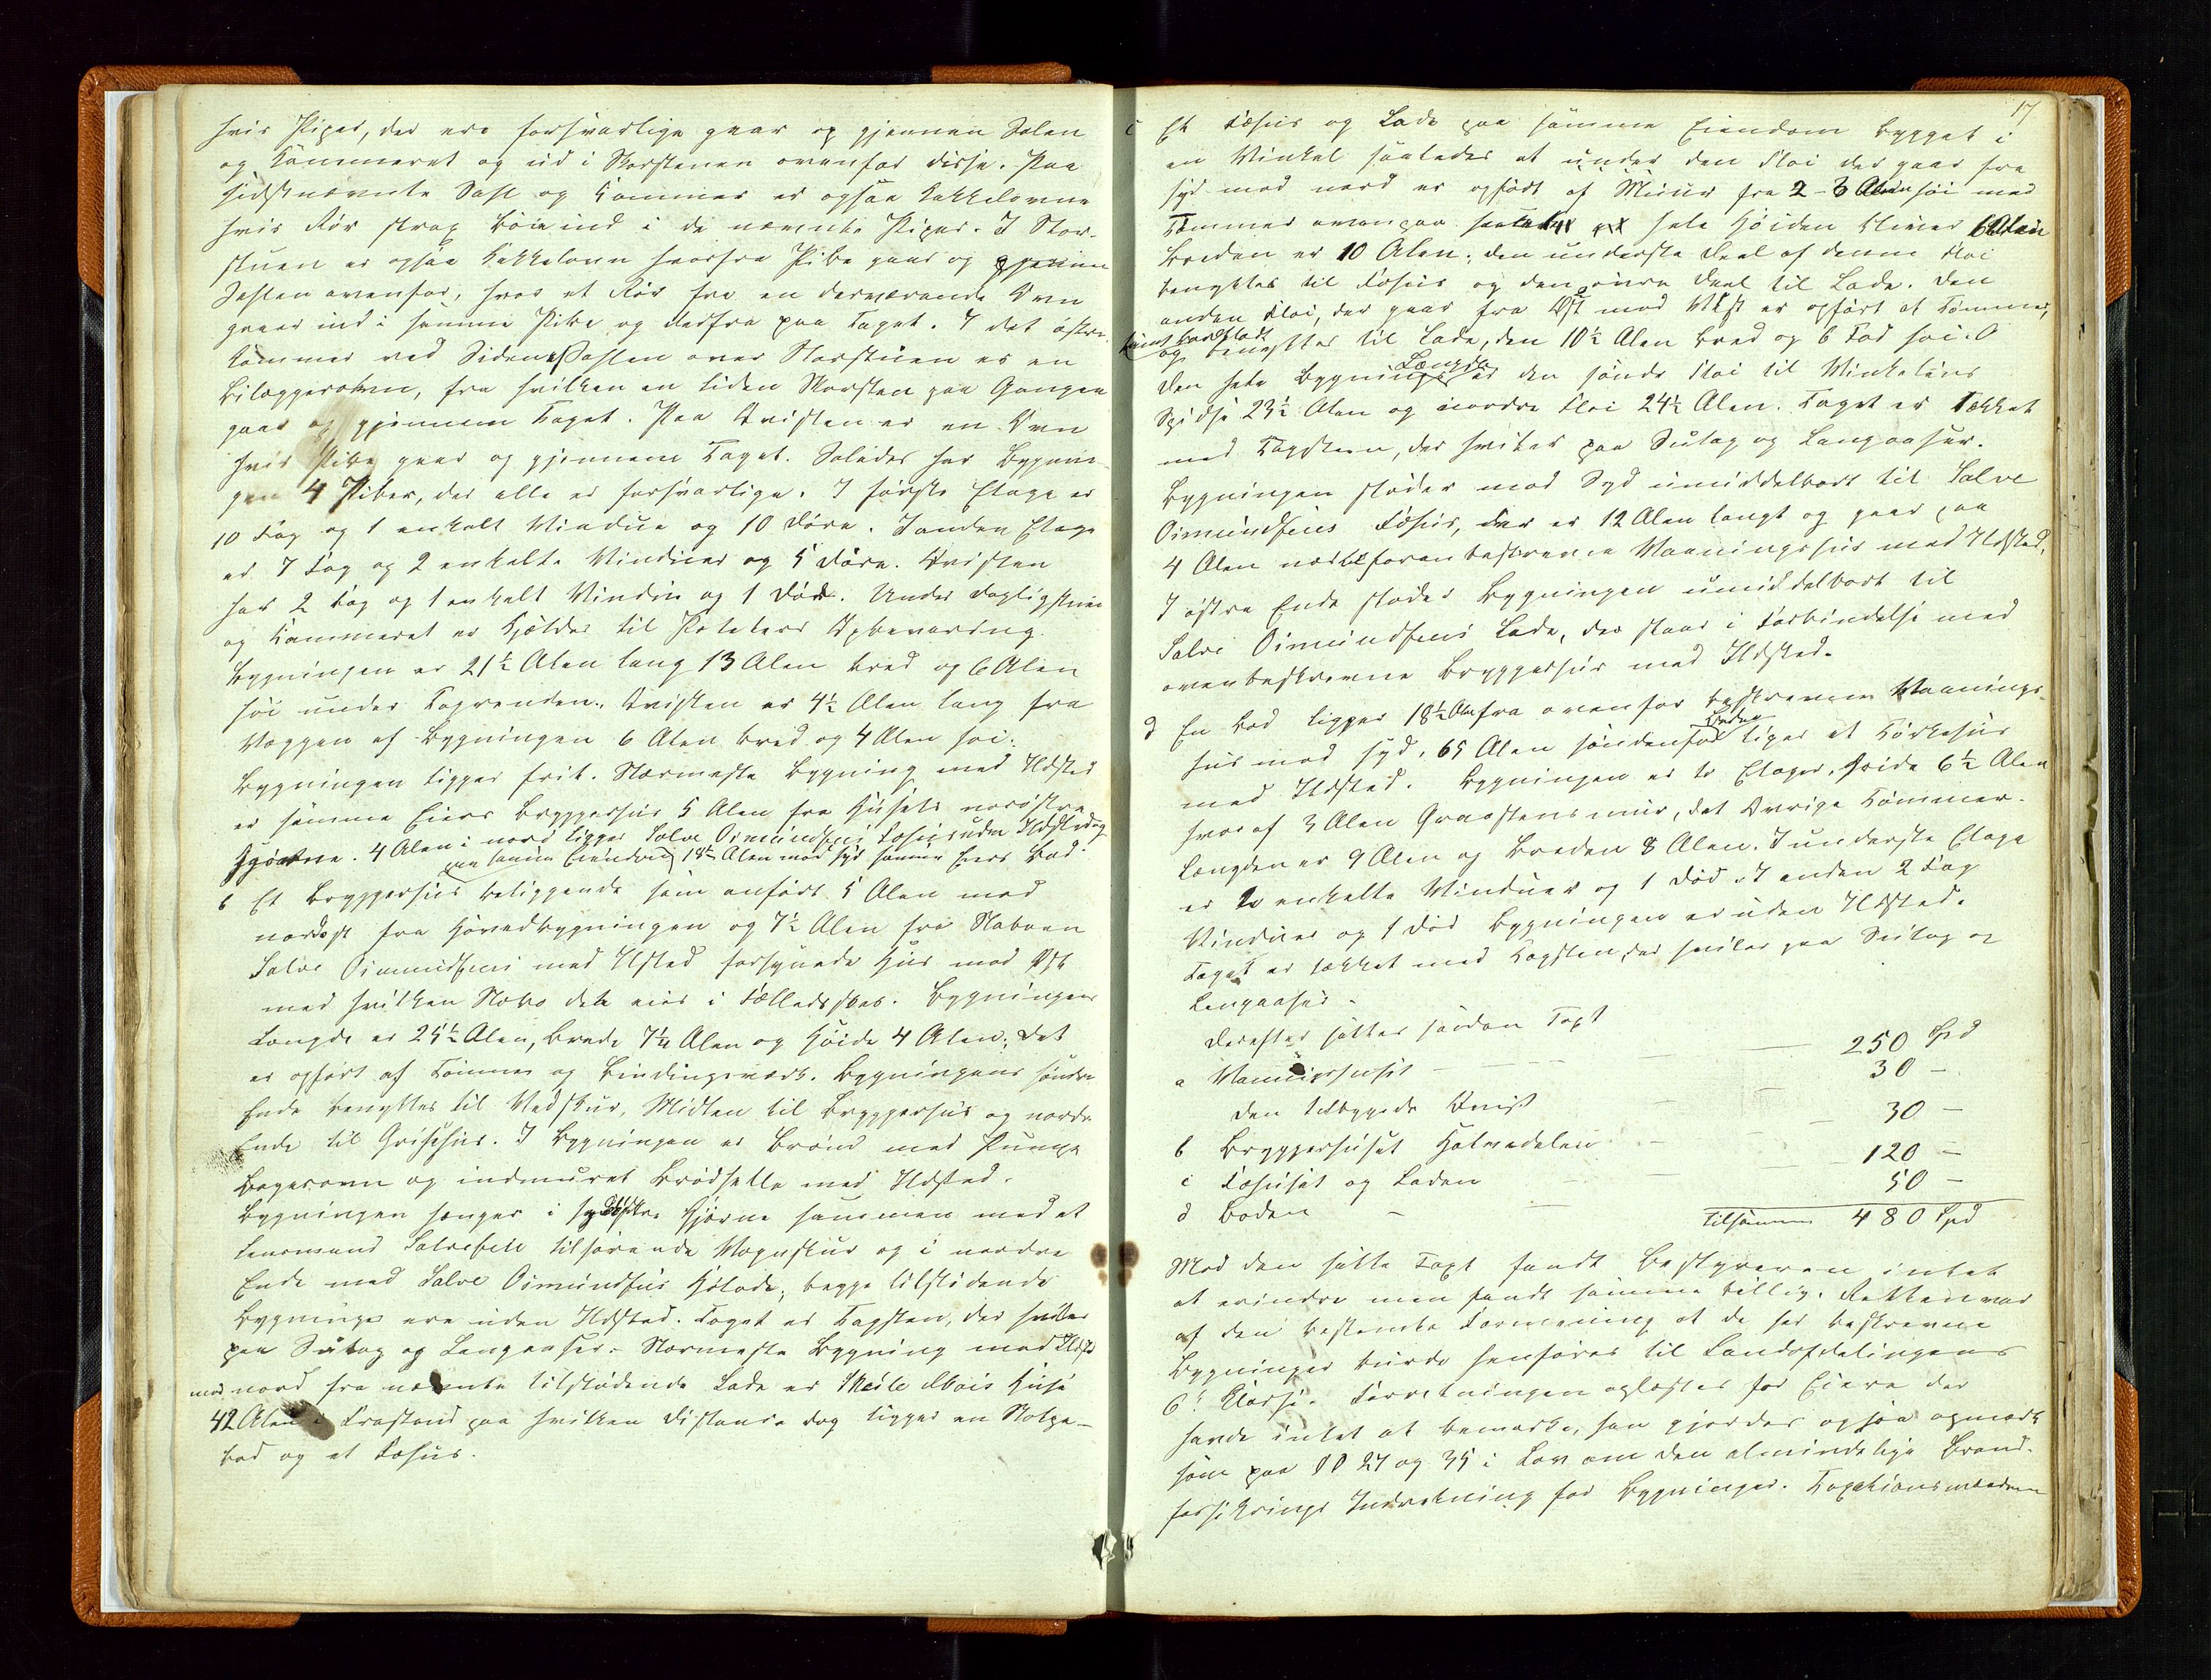 hvis Piper, der ere forsvarlige gaar op gjennem Salen
og Kammeret og ud i Skorstenen ovenfor disse. Paa
sidstnævnte Sahl og Kammer er ogsaa Kakkelovne
hvis Rør strax böie ind i de nævnte Piper. I Stor-
stuen er ogsaa Kakkelovn hvorfra Pibe gaar op gjennem
Sahlen ovenfor, hvor et Rör fra en derværende Ovn
gaar ind i samme Pibe og derfra paa Taget. I det östre
Kammer ved Siden Sahlen over Storstuen er en
Bilæggerovn, fra hvilken en liden Skorsten paa Gangen
gaar op gjennem Taget. Paa Qvisten er en Ovn
hvis Pibe gaar op gjennem Taget. Saledes har Bygnin-
gen 4 Piber, der alle er forsvarlige. I förste Etage er
10 Fag og 1 enkelt Vindue og 10 Döre. I anden Etage
er 7 Fag og 2 enkelte Vinduer og 5 Döre. Qvisten
har 2 Fag og 1 enkelt Vindu og 1 Dör. Under Dagligstuen
og Kammeret er Kjelder til Poteters Opbevaring.
Bygningen er 21½ Alen lang 13 Alen bred og 6 Alen
höi under Tagrenden. Qvisten er 4½ Alen lang fra
Væggen af Bygningen 6 Alen bred og 4 Alen höi.
Bygningen ligger frit. Nærmeste Bygning med Ildsted
er samme Eiers Bryggerhus 5 Alen fra Husets nordöstre
Hjörne. 4 Alen i nord ligger Salve Oimundsens Fæhus uden Ildsted og
paa samme Eiendom 18½ Alen mod Syd samme Eiers Bod.
b Et Bryggerhus beliggende som anfört 5 Alen mod
nordost fra Hovedbygningen og 7½ Alen fra Naboen
Salve Oimundsens med Ildsted forsynede Hus mod Öst
med hvilken Nabo dete eies i Fælledsskab. Bygningens
Længde er 25½ Alen, Brede 7¼ Alen og Höide 4 Alen; det
er opfört af Tömmer og Bindingsværk. Bygningens söndre
Ende benyttes til Vedskur, Midten til Bryggerhus og nordre
Ende til Grisehus. I Bygningen er Brönd med Pumpe
Bagerovn og indmuret Brödhelle med Ildsted.
Bygningen hænger i sydöstre Hjörne sammen med et
Lensmand Salvesen tilhörende Vognskur og i nordre
Ende med Salve Oimundsens Hölade; begge tilstödende
Bygninger ere uden Ildsted. Taget er Tagsten, der hviler
paa Sutag og Langaaser. Nærmeste Bygning med Ildsted
mod nord fra nævnte tilstødende Lade er Huse
42 Alen i Frastand paa hvilken Distance dog ligger en Stolpe-
bod og et Fæhus.
17
c Et Fæhus og Lade paa samme Eiendom bygget i
en Vinkel saaledes at under den Flöi der gaar fra
syd mod nord er opfört af Muur fra 2-3 Alen höi med
Tömmer ovenpaa hele Höiden bliver 6 Alen
Breden er 10 Alen; den underste Deel af denne Flöi
benyttes til Fæhus og den övre Deel til Lade. Den
anden Flöi, der gaar fra Öst mod Vest er opfört af Tömmer,
og benyttes til Lade, den 10½ Alen bred og 6 Fod höi.
Den hele Bygnings Længde er den söndre Flöi til Vinkelens
Spidse 23½ Alen og nordre Flöi 24½ Alen. Taget er Tækket
med Tagsteen, der hviler paa Sutag og Langaaser.
Bygningen støder mod Syd umiddelbart til Salve
Oimundsens Fæhus, der er 12 Alen langt og gaar paa
4 Alen nær foran beskrevne Vaaningshus med Ildsted.
I östre Ende støder Bygningen umiddelbart til
Salve Oimundsens Lade, der staar i Forbindelse med
ovenbeskrevne Bryggerhus med Ildsted.
d En Bod ligger 18½ Alen fra ovenfor beskrevne Vaanings-
hus mod Syd. 65 Alen söndenfor Boden liger et Törkehus
med Ildsted. Bygningen er to Etager, Höide 6½ Alen
hvoraf 3 Alen Graastensmur, det Övrige Tömmer.
Længden er 9 Alen og Breden 8 Alen. I underste Etage
er to enkelte Vinduer og 1 Dör. I anden 2 Fag
Vinduer og 1 Dör Bygningen er uden Ildsted.
Taget er tækket med Tagsten der hviler paa Sutag og
Langaaser.
Derefter sattes saadan Taxt
a Vaaningshuset — — 250 Spd
den tilbyggede Qvist — 30 —
b Bryggerhuset Halvedelen — 30 —
c Fæhuset og Laden — 120 —
d Boden — 50 —
Tilsammen 480 Spd
Mod den satte Taxt fandt Bestyreren intet
at erindre men fandt samme billig. Retten var
af den bestemte Formening at de her beskrevne
Bygninger burde henføres til Landafdelingens
6te Klasse. Forretningen oplæstes for Eieren der
havde intet at bemærke, han gjordes ogsaa opmærk
som paa §§ 27 og 35 i Lov om den almindelige Brand-
forsikrings Indretning for Bygninger. Taxtionsmændene